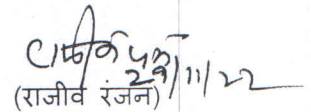 29/11/22
(राजीव रंजन)